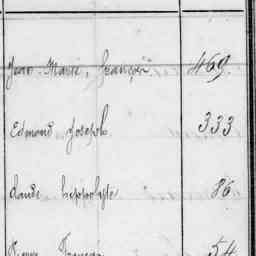 Jean-Marie, François 469.
Edmond Joseph 333
Claude hippolyte 86
Pierre François 54